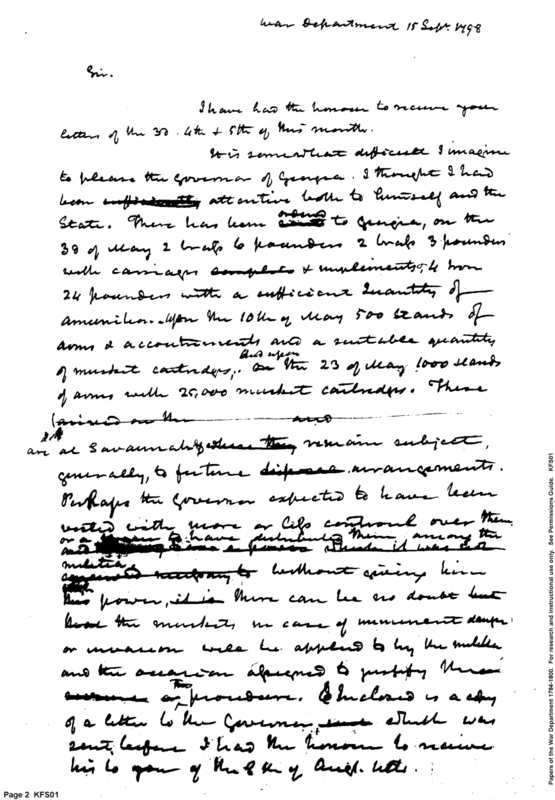 War Department 15 Sept. 1798
Sir.
I have had the honour to receive your
letters of the 3d. 4th & 5th of this month.
It is somewhat difficult I imagine
to please the Governor of Georgia. I thought I had
been sufficiently attentive both to himself and the
State. There has been ordered to Georgia, on the
3d of May 2 brass 6 pounders 2 brass 3 pounders
with carriages complete & implements, & 4 Iron
24 pounders with a sufficient Quantity of
amunition. Upon the 10th of May 500 stands of
arms & accoutrements and a suitable quantity
of musket cartridges,. And upon
the 23 of May 1000 stands
of arms with 25,000 musket cartridges. These
arrived on the and
are at Savannah & these they remain subject,
generally, to further disposal arrangements.
Perhaps the Governor expected to have been
vested with more or less controul over them,
or a to have distributed them among the
militia
without giving him
this power, it is there can be no doubt but
that the muskets in case of imminent danger
or invasion will be applied to by the militia
and the occasion assigned to justify
procedure. Inclosed is a copy
of a letter to the Governor which was
sent, before I had the honour to receive
his to you of the 8th of Augt. ulto.
Page 2 KFS01
Papers of the War Department 1784-1800. For research and instructional use only. See Permissions Guide. KFS01